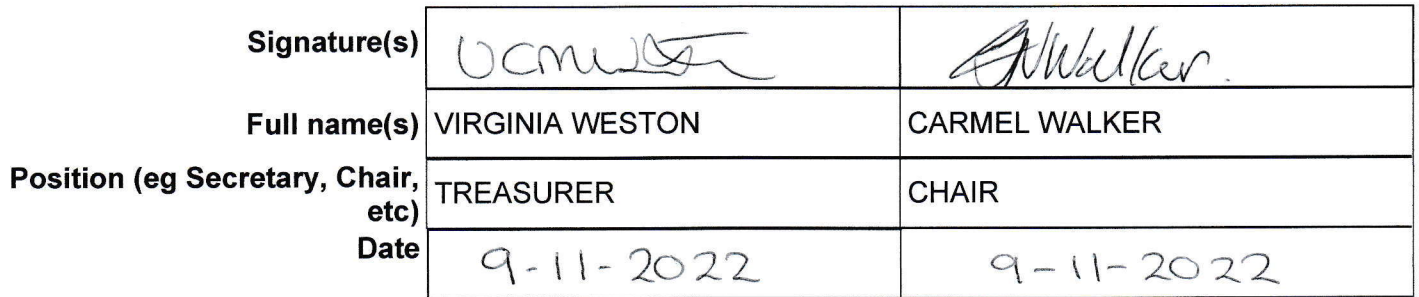 Signature(s) Walker.
Full name(s) VIRGINIA WESTON CARMEL WALKER
Position (eg Secretary, Chair,
etc) TREASURER CHAIR
Date 9-11-2022 9-11-2022